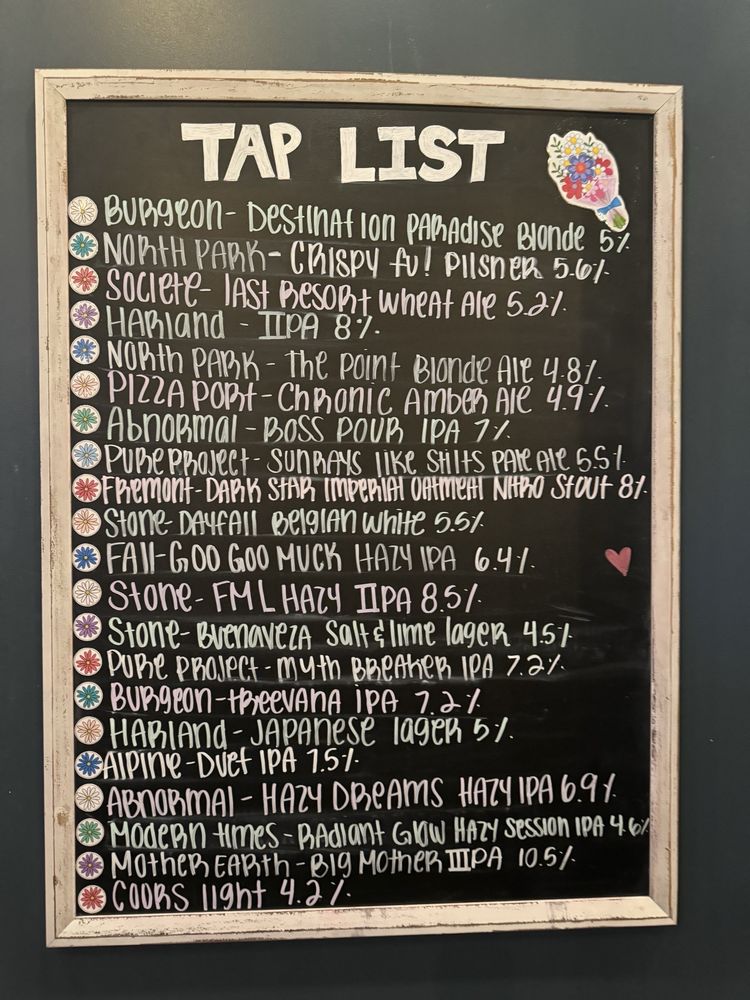 TAP LIST
Burgeon - Destination Paradise Blonde 5%
North Park - Crispy fu! Pilsner 5.6%
Societe - Last Resort Wheat Ale 5.2%
Harland - IIPA 8%
North Park - The Point Blonde Ale 4.8%
Pizza Port - Chronic Amber Ale 4.9%
Abnormal - Boss Pour IPA 7%
Pure Project - Sunrays like Stilts Pale Ale 5.5%
Fremont - Dark Star Imperial Oatmeal Nitro Stout 8%
Stone - Dayfall Belgian White 5.5%
Fall - Goo Goo Muck Hazy IPA 6.4%
Stone - FML Hazy IIPA 8.5%
Stone - Buenaveza Salt & lime lager 4.5%
Pure Project - Myth Breaker IPA 7.2%
Burgeon - Treevana IPA 7.2%
Harland - Japanese lager 5%
Alpine - Duet IPA 7.5%
Abnormal - Hazy Dreams Hazy IPA 6.9%
Modern times - Radiant Glow Hazy Session IPA 4.6%
Mother Earth - Big Mother IIIPA 10.5%
Coors light 4.2%